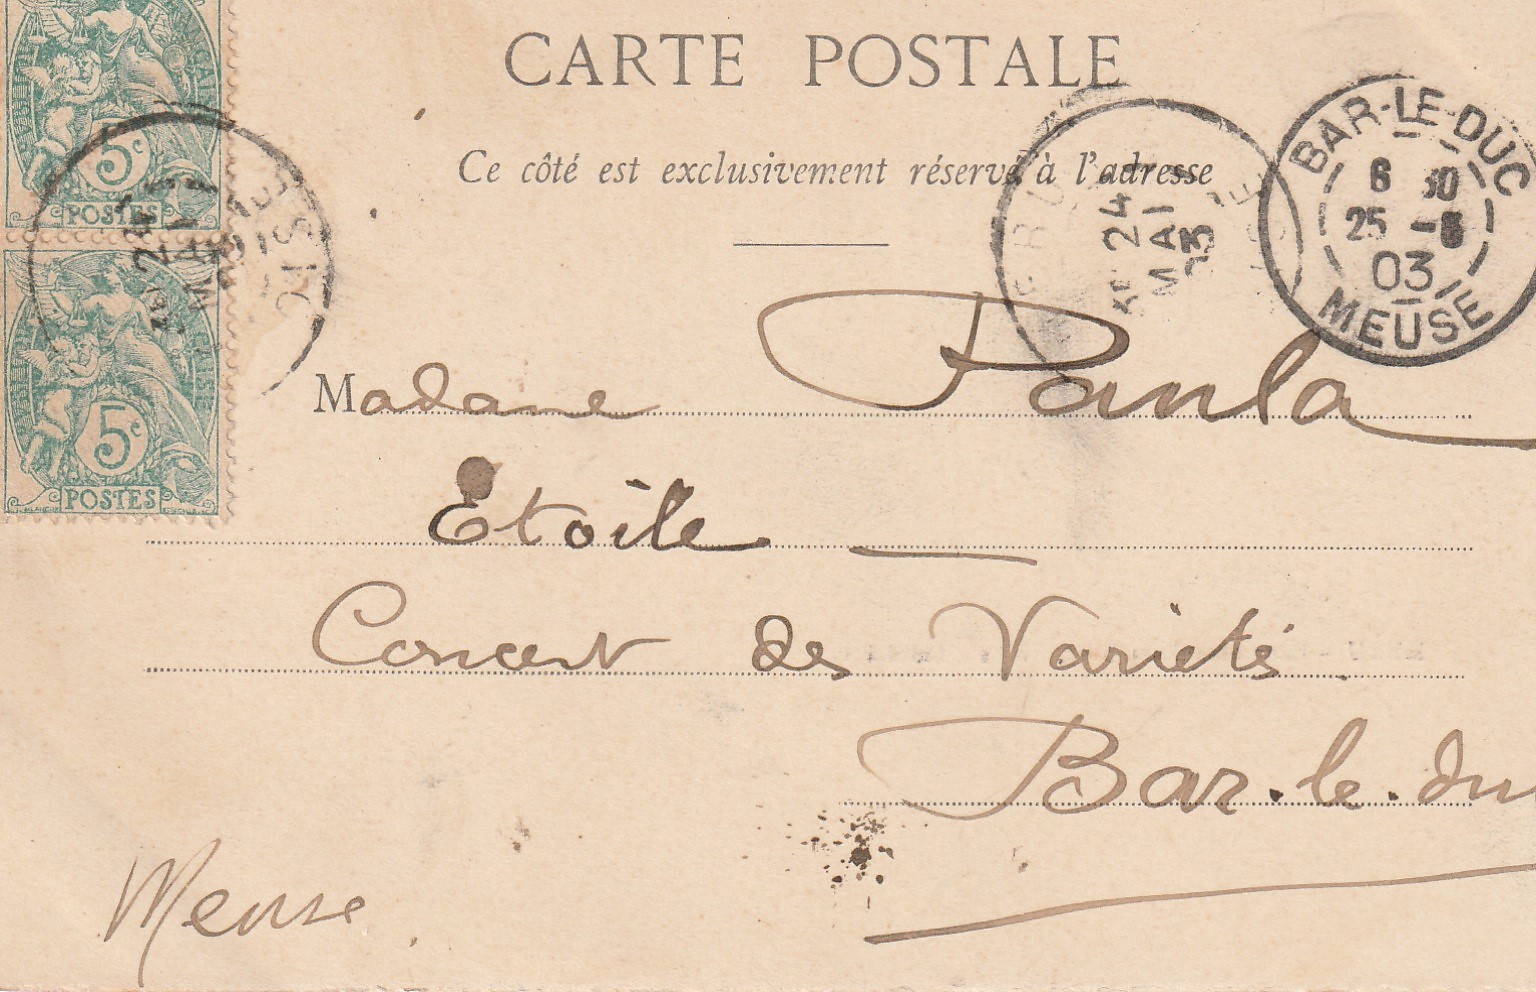 CARTE POSTALE
Ce côté est exclusivement réservé à l'adresse
5c
POSTES
5c
POSTES
24
MAI
24
MAI
03
BAR-LE-DUC
6 30
25 -5
03
MEUSE
Madame Paula
Etoile
Concert des Variétés
Bar-le-duc
Meuse